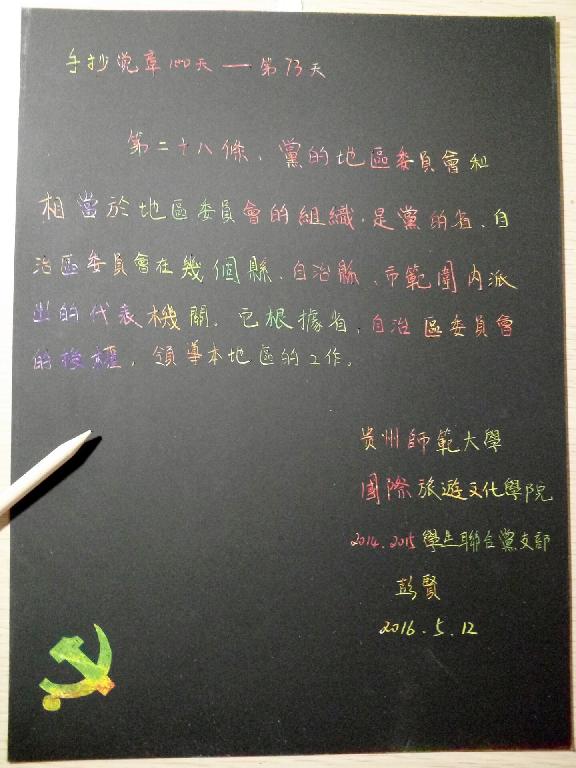 手抄党章100天——第73天
第二十八條、黨的地區委員會和
相當於地區委員會的組織,是黨的省、自
治區委員會在幾個縣、自治縣、市範圍內派
出的代表機關。它根據省、自治區委員會
的授權,領導本地區的工作。
贵州師範大學
國際旅遊文化學院
2014.2015學生聯合黨支部
彭賢
2016.5.12